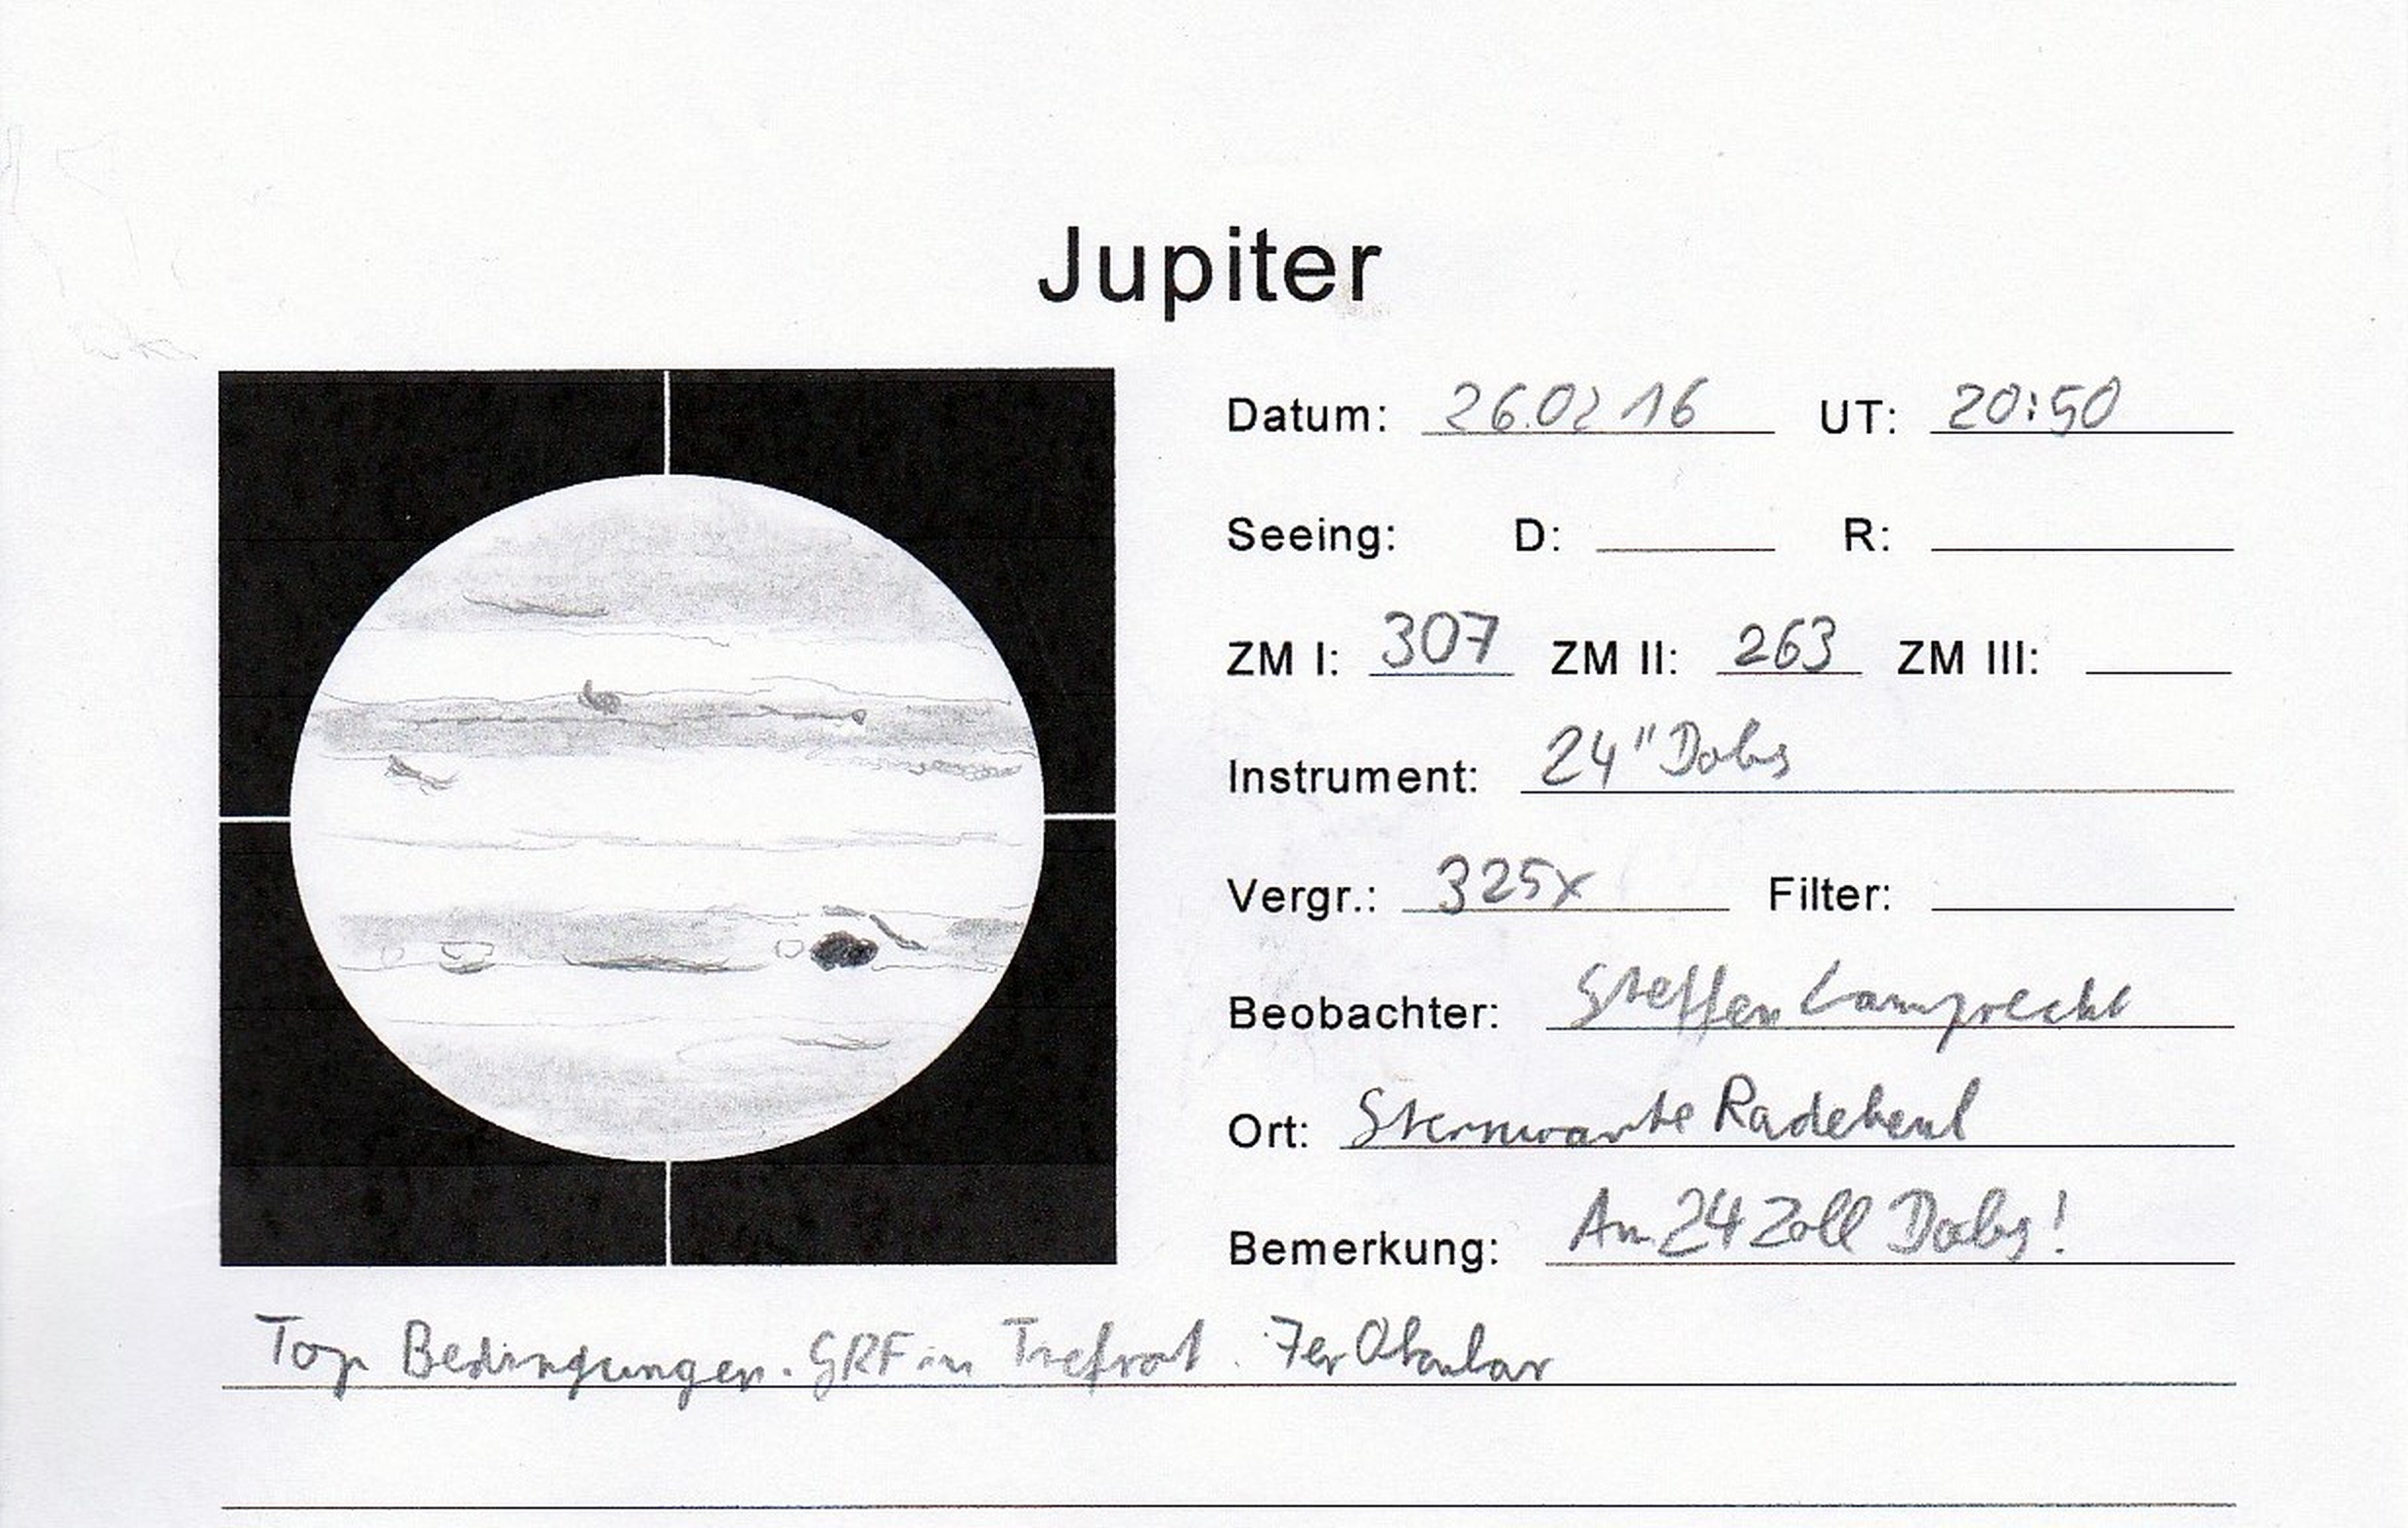 Jupiter
Datum: 26.02.16 UT: 20:50
Seeing: D: R:
ZM I: 307 ZM II: 263 ZM III:
Instrument: 24" Dobs
Vergr.: 325x Filter:
Beobachter: Steffen Lamprecht
Ort: Sternwarte Radebeul
Bemerkung: Am 24 Zoll Dobs!
Top Bedingungen. GRF in Tiefrot. 7er Okular